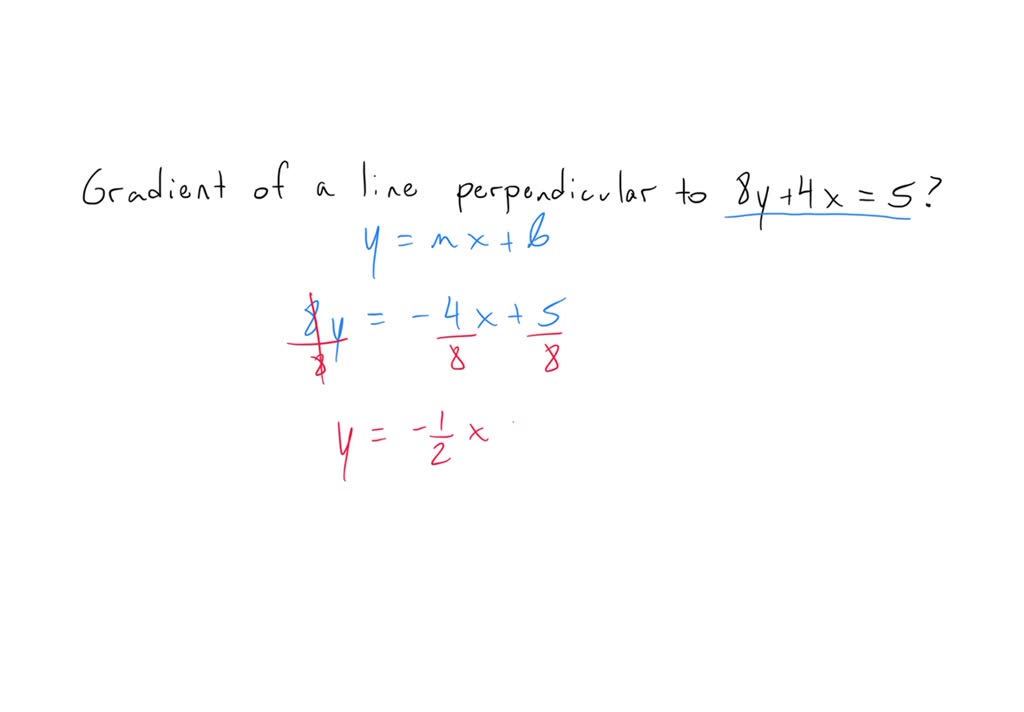 Gradient of a line perpendicular to 8y+4x=5?
y = mx+b
8y/8 = -4/8 x + 5/8
y = -1/2 x